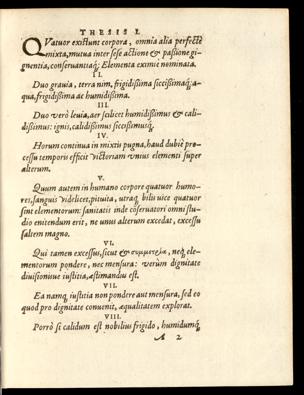 THESIS I.
QVatuor existunt corpora, omnia alia perfectè
mixta, mutua inter sese actione & passione gi-
gnentia, conseruantiaq́;: Elementa eximiè nominata.
II.
Duo grauia, terra nim, frigidissima siccissimaq́;: a-
qua, frigidissima ac humidissima.
III.
Duo verò leuia, aer scilicet humidissimus & cali-
dissimus: ignis, calidissimus siccissimusq́.
IV.
Horum continua in mixtis pugna, haud dubiè pro-
cessu temporis efficit victoriam vnius elementi super
alterum.
V.
Quum autem in humano corpore quatuor humo-
res, sanguis videlicet, pituita, utraq́; bilis uice quatuor
sint elementorum: sanitatis inde cōseruatori omni stu-
dio enitendum erit, ne unus alterum excedat, excessu
saltem magno.
VI.
Qui tamen excessus, sicut & συμμετρία, neq́; ele-
mentorum pondere, nec mensura: verùm dignitate
diuisioniue iustitia, æstimandus est.
VII.
Ea namq́; iustitia non pondere aut mensura, sed eo
quod pro dignitate conuenit, æqualitatem explorat.
VIII.
Porrò si calidum est nobilius frigido, humidumq́;
A 2